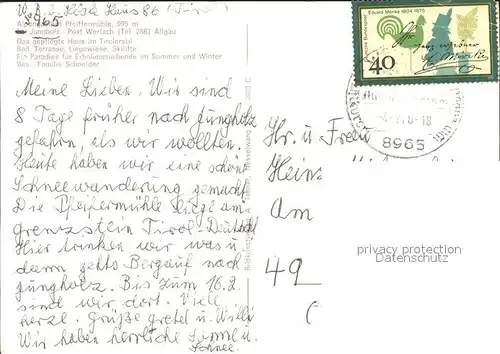 8965
Haus 86 (Tirol)
Pfeiffermühle, 995 m
Jungholz Post Wertach (Tel 288) Allgäu
Das gepflegte Haus im Tirolerstil
Bad, Terrasse, Liegewiese, Skilifte
Ein Paradies für Erholungsuchende im Sommer und Winter
Bes. Familie Schneider
Meine Lieben. Wir sind
8 Tage früher nach Jungholz
gefahren, als wir wollten.
Heute haben wir eine schöne
Schneewanderung gemacht.
Die Pfeifermühle liegt am
grenzstein Tirol-Deutschl
Hier trinken wir was u.
dann gehts Bergauf nach
Jungholz. Bis zum 16.2.
sind wir dort. Viele
herzl. Grüße gretel u. Willi
Wir haben herrliche Sonne u.
Schnee.
Eduard Mörike 1804 1875
40
8965
Hr. u. Frau
Heinz
Am
49
privacy protection
Datenschutz